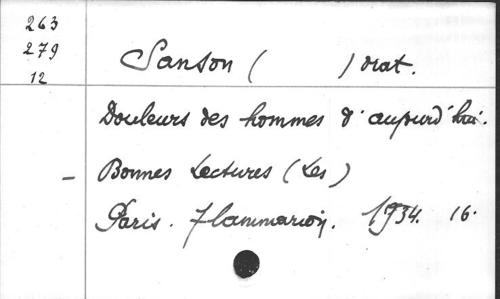 263
279
12
Sanson ( ) orat.
Douleurs des hommes d'aujourd'hui.
- Bonnes Lectures (Les)
Paris. Flammarion. 1934. 16.